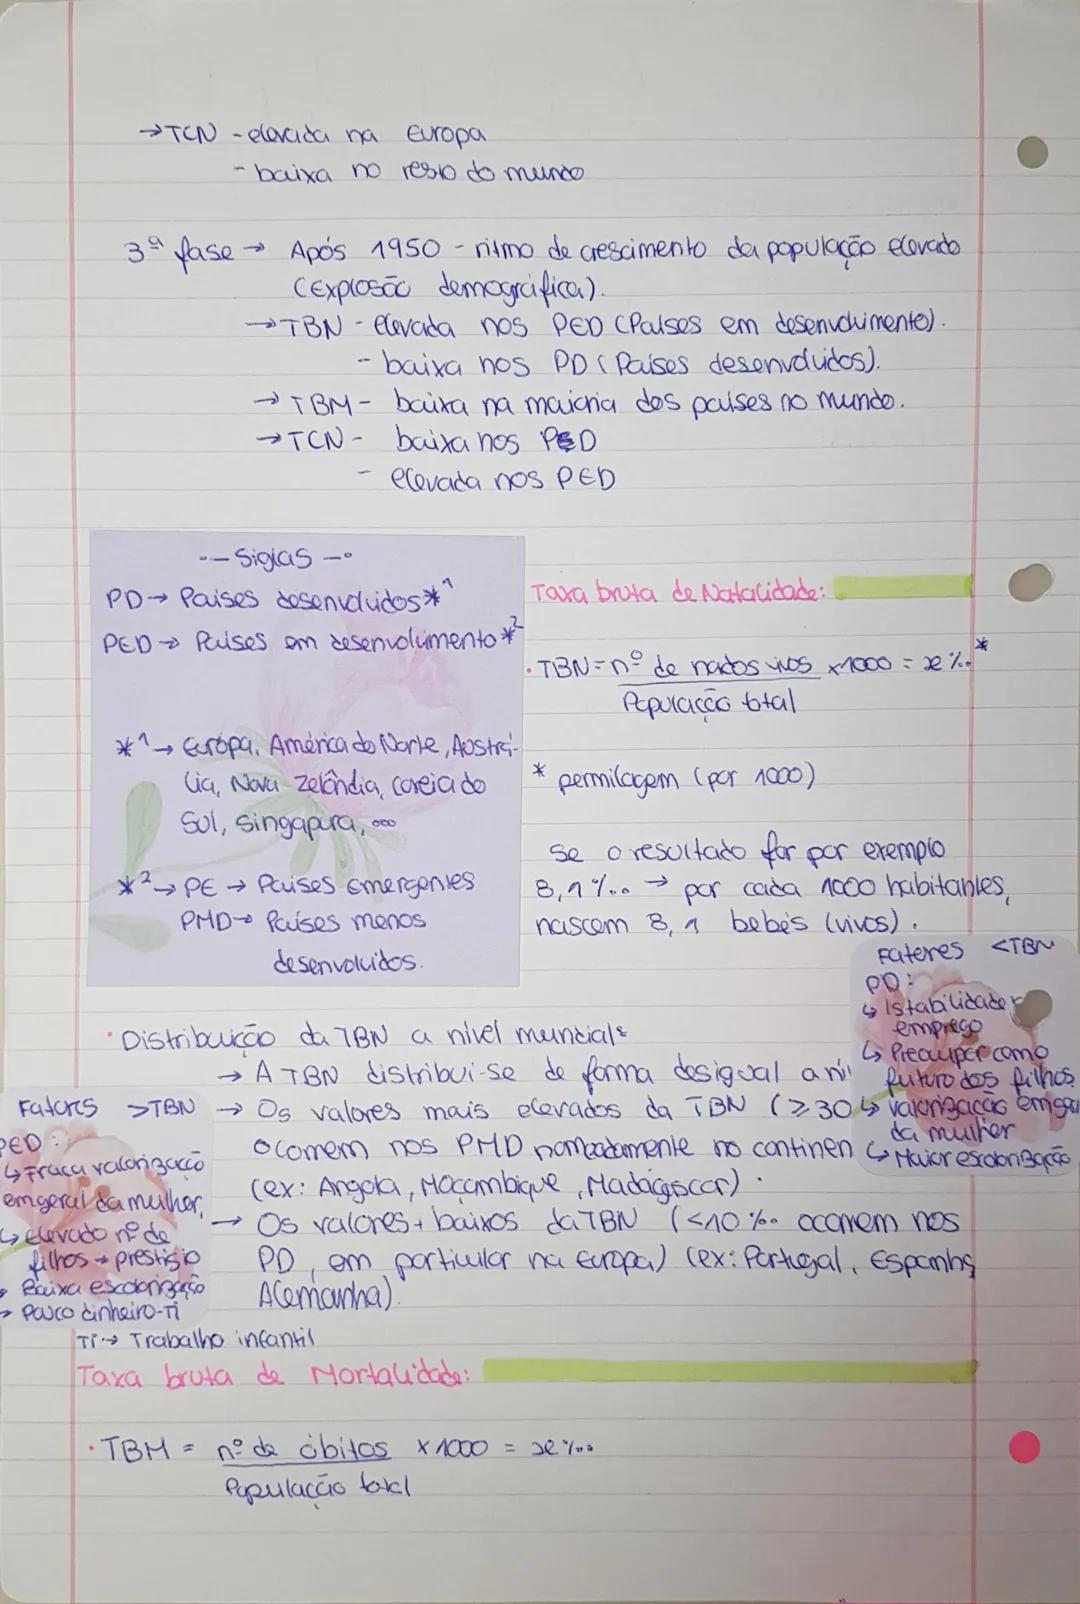 →TCN - elevada na Europa
- baixa no resto do mundo
3ª fase → Após 1950 - ritmo de crescimento da população elevado
(Explosão demográfica).
→TBN - Elevada nos PED (Países em desenvolvimento).
- baixa nos PD (Países desenvolvidos).
→ TBM - baixa na maioria dos países no mundo.
→TCN - baixa nos PED
- elevada nos PED
-- Siglas --
PD → Países desenvolvidos *1
PED → Países em desenvolvimento *2
*1 → Europa, América do Norte, Austrá-
lia, Nova Zelândia, Coreia do
Sul, Singapura, ...
*2 → PE → Países Emergentes
PMD → Países menos
desenvolvidos.
Taxa bruta de Natalidade:
· TBN = nº de nados vivos x1000 = x ‰ *
População total
* permilagem (por 1000)
Se o resultado for por exemplo
8,1 ‰ → por cada 1000 habitantes,
nascem 8,1 bebés (vivos).
Fatores <TBN
PD:
↳ Istabilidade
emprego
↳ Preocupar com o
futuro dos filhos
↳ valorização em ge
da mulher
↳ Maior escolorização
· Distribuição da TBN a nível mundial:
→ A TBN distribui-se de forma desigual a ní
→ Os valores mais elevados da TBN (≥30
ocorrem nos PMD nomeadamente no continen
(ex: Angola, Moçambique, Madagáscar).
→ Os valores + baixos da TBN (<10 ‰ ocorrem nos
PD, em particular na Europa) (ex: Portugal, Espanha,
Alemanha).
Fatores >TBN
PED:
↳ Fraca valorização
em geral da mulher,
↳ elevado nº de
filhos → prestígio
Baixa escolorização
→ Pouco dinheiro - TI
TI → Trabalho infantil
Taxa bruta de Mortalidade:
· TBM = nº de óbitos x 1000 = x ‰
População total